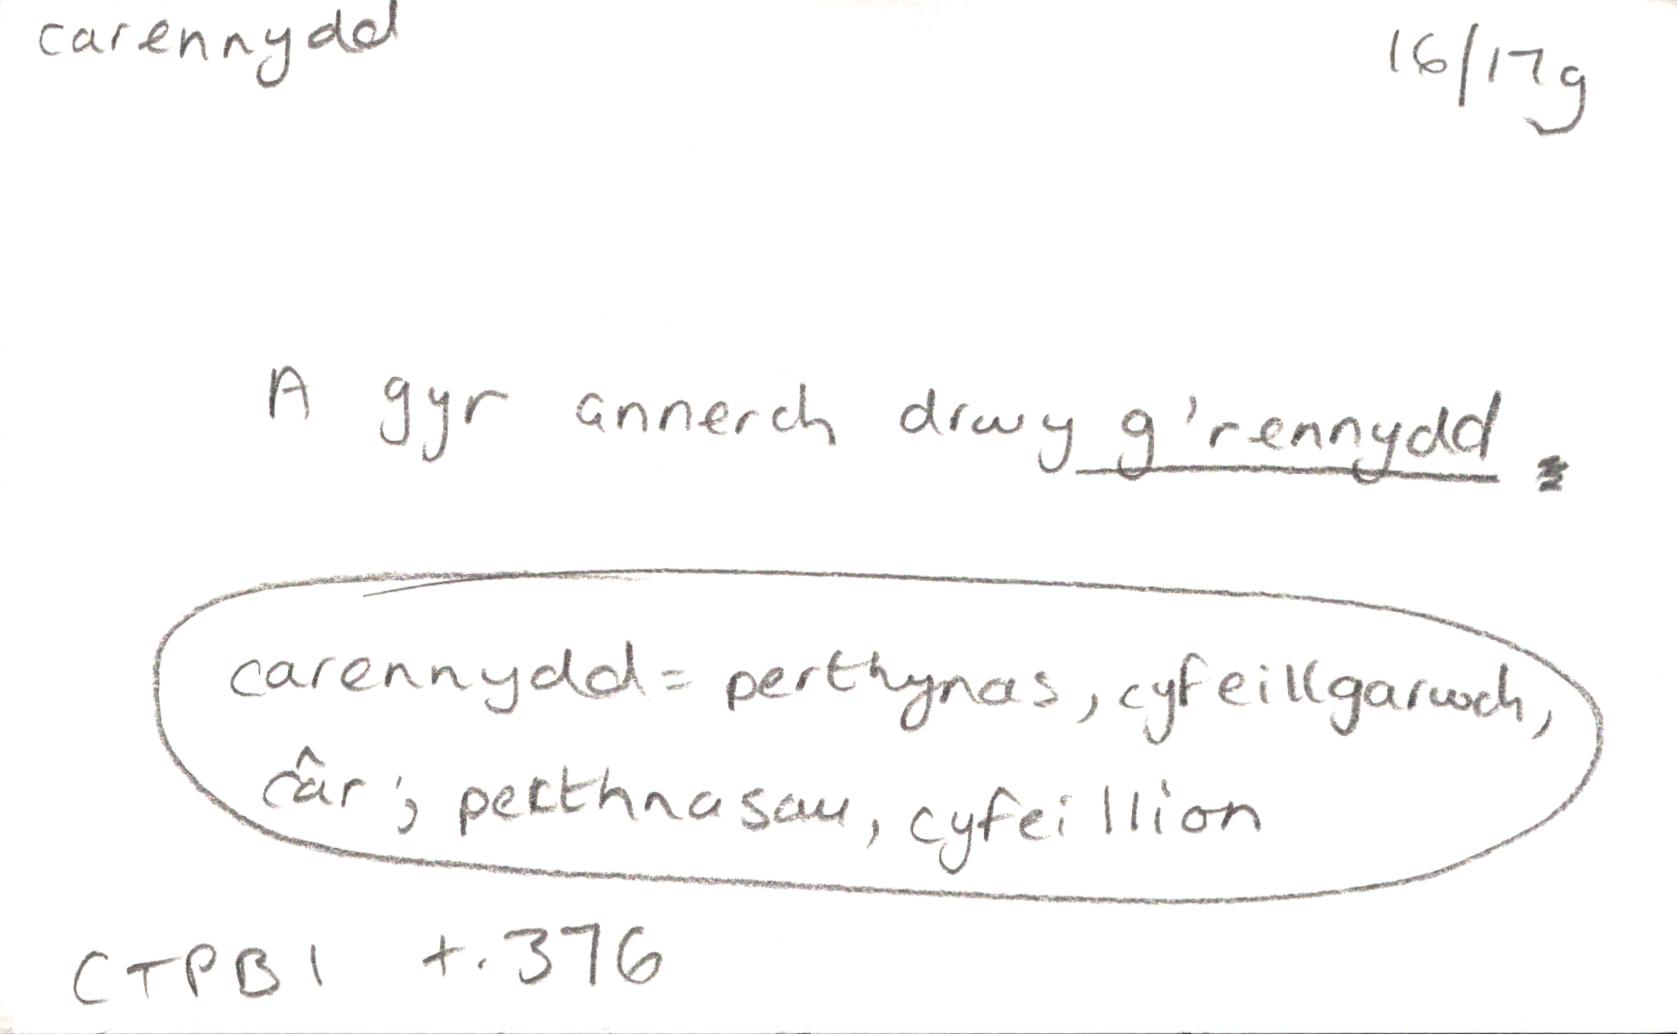 carennydd 16/17g
A gyr annerch drwy g'rennydd.
carennydd = perthynas, cyfeillgarwch,
câr; perthnasau, cyfeillion
CTPB1 t.376